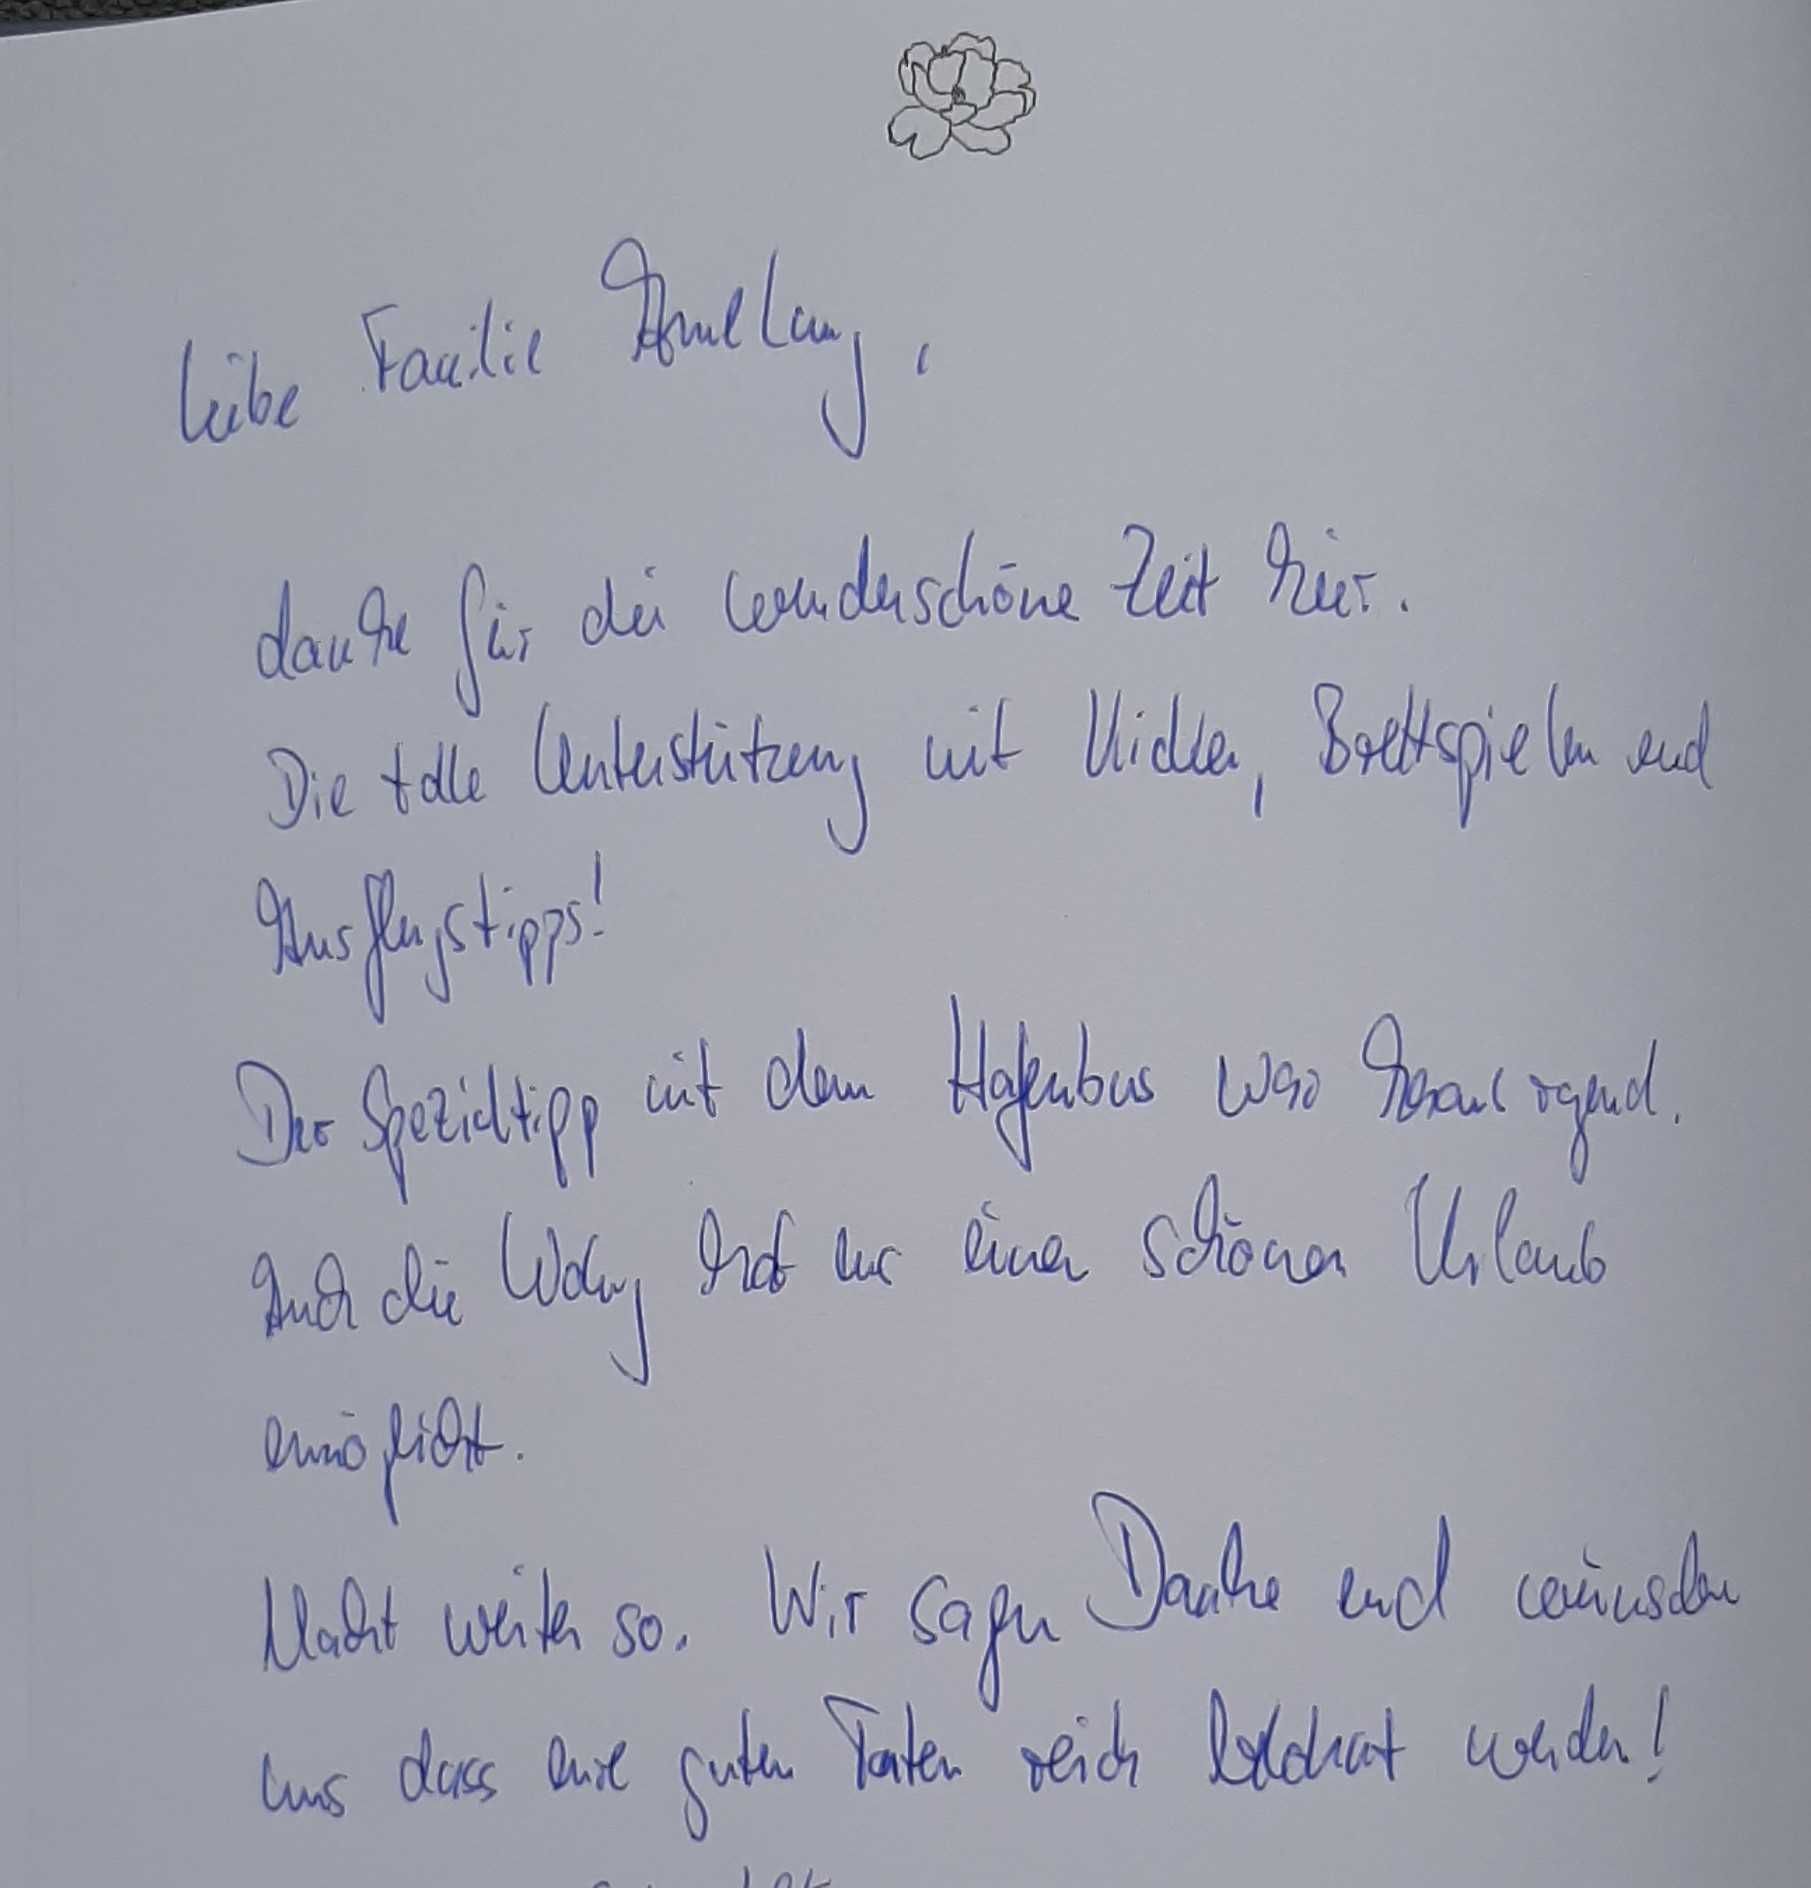 Liebe Familie Amellang,
danke für die wunderschöne Zeit hier.
Die tolle Unterstützung mit Kicker, Brettspielen und
Ausflugstipps!
Der Spezialtipp mit dem Hafenbus war herausragend.
Auch die Wohng hat uns einen schönen Urlaub
ermöglicht.
Macht weiter so. Wir sagen Danke und wünschen
uns dass eure guten Taten reich belohnt werden!